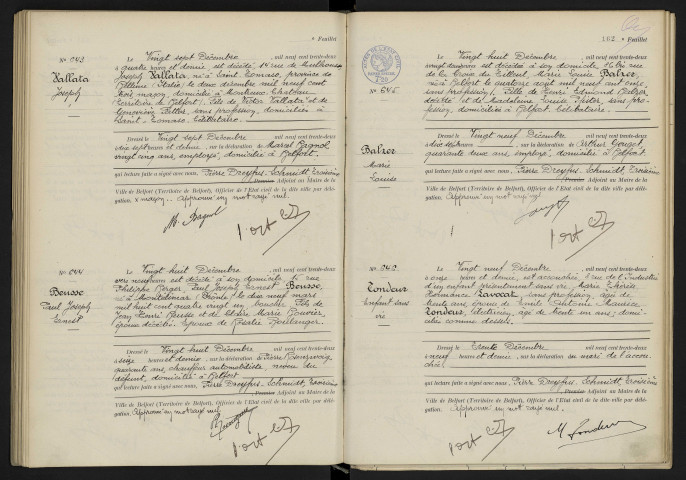 " Feuillet
N° 643
Vallata
Joseph
Le Vingt sept Décembre, mil neuf cent trente-deux
à quatre heures et demie est décédé, 14 rue de Mulhouse
Joseph Vallata, né à Saint Tomaso, province de
Bellune (Italie), le deux décembre mil neuf cent
trois, maçon, domicilié à
(Territoire de Belfort), fils de Victor Vallata et de
Geneviève, sans profession, domiciliés à
Saint Tomaso. Célibataire.
Dressé le Vingt sept Décembre, mil neuf cent trente-deux
à dix sept heures et demie, sur la déclaration de Marcel Pagnol
vingt cinq ans, employé, domicilié à Belfort,
qui lecture faite a signé avec nous, Pierre Dreyfus-Schmidt, Troisième
Premier Adjoint au Maire de la
Ville de Belfort (Territoire de Belfort), Officier de l'Etat civil de la dite ville par délé-
gation. x maçon. Approuvé un mot rayé nul.
N° 644
Bousse
Paul Joseph
Ernest
Le Vingt huit Décembre, mil neuf cent trente-deux
heures est décédé à son domicile, rue
Philippe Berger, Paul Joseph Ernest Bousse,
né à Montélimar (Drôme) le dix neuf mars
mil huit cent quatre vingt un, boucher, fils de
Jean Henri Bousse et de Claire Marie Bouvier,
époux décédés. Epoux de Rosalie Boulenger.
Dressé le Vingt huit Décembre, mil neuf cent trente-deux
à seize heures et demie, sur la déclaration de Pierre
quarante ans, chauffeur automobiliste, neveu du
défunt, domicilié à Belfort
qui lecture faite a signé avec nous, Pierre Dreyfus-Schmidt, Troisième
Premier Adjoint au Maire de la
Ville de Belfort (Territoire de Belfort), Officier de l'Etat civil de la dite ville par délé-
gation. Approuvé un mot rayé nul.
162 " Feuillet
N° 645
Balzer
Marie
Louise
Le Vingt huit Décembre, mil neuf cent trente-deux
à vingt heures est décédée à son domicile, rue
de la Croix du Tilleul, Marie Louise Balzer,
née à Belfort le quatorze août mil neuf cent
sans profession, fille de Henri Edmond Balzer,
décédé et de Madeleine Louise, sans pro-
fession, domiciliée à Belfort. Célibataire.
Dressé le Vingt neuf Décembre, mil neuf cent trente-deux
à dix heures, sur la déclaration de Arthur Gouget,
quarante deux ans, employé, domicilié à Belfort
qui lecture faite a signé avec nous, Pierre Dreyfus-Schmidt, Troisième
Premier Adjoint au Maire de la
Ville de Belfort (Territoire de Belfort), Officier de l'Etat civil de la dite ville par délé-
gation. Approuvé un mot rayé nul.
Tondeur
Enfant sans
vie
Le Vingt neuf Décembre, mil neuf cent trente-deux
à onze heures et demie, est accouchée rue de l'Industrie
d'un enfant présentement sans vie, Marie Thérèse
Hermance Lavocat, sans profession, âgée de
trente ans, épouse de Emile Antoine Maurice
Tondeur, électricien, âgé de trente un ans; domi-
ciliés comme dessus.
Dressé le trente Décembre, mil neuf cent trente-deux
à neuf heures et demie, sur la déclaration du mari de l'accou-
chée
qui lecture faite a signé avec nous, Pierre Dreyfus-Schmidt, Troisième
Premier Adjoint au Maire de la
Ville de Belfort (Territoire de Belfort), Officier de l'Etat civil de la dite ville par délé-
gation. Approuvé un mot rayé nul.
M Tondeur